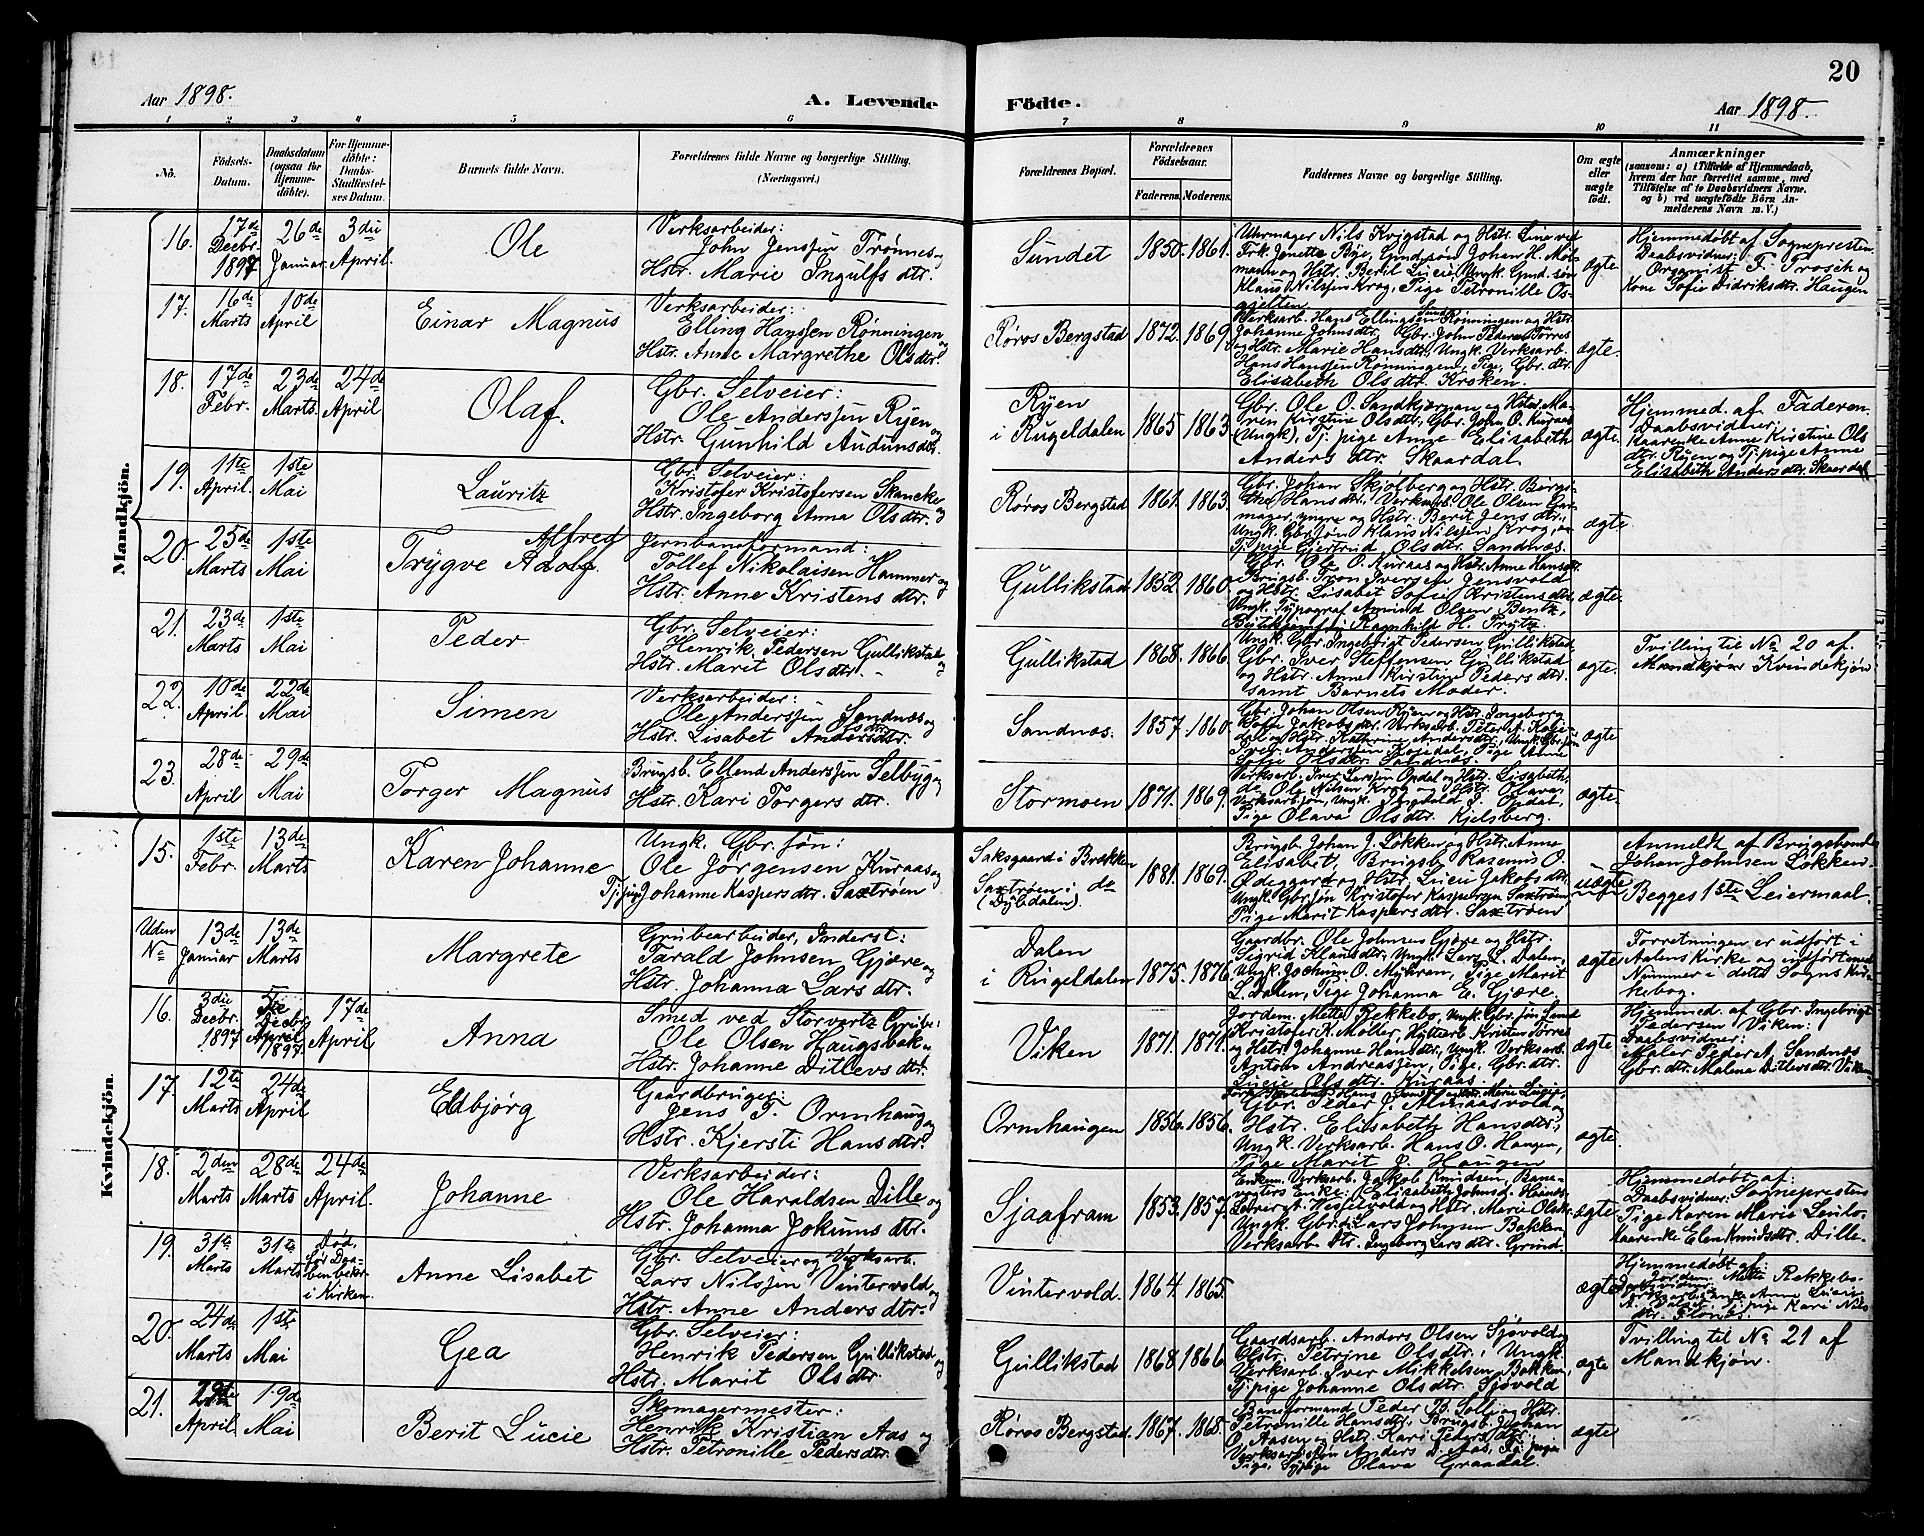 20
Aar 1898.
A. Levende
Födte.
Aar 1898.
1 2 3 4 5 6 7 8 9 10 11
No.
Födsels-
Datum.
Daabsdatum
(ogsaa for
Hjemme-
döbte).
For Hjemme-
döbte:
Daabs-
Stadfæstel-
ses Datum.
Barnets fulde Navn.
Forældrenes fulde Navne og borgerlige Stilling.
(Næringsvei.)
Forældrenes Bopæl.
Forældrenes
Födselsaar.
Faderens. Moderens.
Faddernes Navne og borgerlige Stilling.
Om ægte
eller
uægte
födt.
Anmærkninger
(saasom: a) i Tilfælde af Hjemmedaab,
hvem der har forrettet samme, med
Tilföielse af to Daabsvidners Navne.
og b) ved uægtefödte Börn An-
melderens Navn m. V.)
Mandkjön.
16.
17de
Decbr.
1897
26de
Januar.
3die
April.
Ole
Verksarbeider:
John Jenssen Trønnes og
Hstr. Marie Ingulfs dtr.
Sundet
1850. 1861.
Uhrmager Nils Kvigstad og Hstr. Line ved
Klaus Nilssen Krog, Pige Petronille Os-
ægte.
Hjemmedøbt af Sognepresten
Daabsvidner:
Organist F. Trosch og
Kone Sofie Didriksdtr. Haugen
17.
16de
Marts
10de
April
Einar Magnus
Verksarbeider:
Elling Hanssen Rønningen og
Hstr. Anne Margrethe Olsdtr.
Røros Bergstad
1872. 1869.
Verksarb. Hans Ellingsen Rønningen og Hstr.
Johanne Johnsdtr. Gbr. John Pedersen Torres
og Hstr. Marie Hansdtr., Ungk. Verksarb.
Hans Hanssen Rønningen, Pige, Gbr. dtr.
Elisabeth Olsdtr. Kroken.
ægte.
18.
17de
Febr.
23de
Marts.
24de
April
Olaf.
Gbr. Selveier:
Ole Anderssen Ryen og
Hstr. Gunhild Audunsdtr.
Ryen
i Rugeldalen
1865 1863.
Gbr. Ole O. Sandkjernan og Hstr. Ma-
ren Kirstine Olsdtr., Gbr. John O. Kuraas
(Ungk), Tj. pige Anne Elisabeth
Anders dtr. Skaardal.
ægte.
Hjemmed. af Faderen.
Daabsvidner:
Kaarenke Anne Kirstine Ols
dtr. Ryen og Tj. pige Anne
Elisabeth Anders dtr. Skaardal
19.
11te
April.
1ste
Mai
Lauritz
Gbr. Selveier:
Kristofer Kristofersen Skancke og
Hstr. Ingeborg Anna Olsdtr.
Røros Bergstad
1861. 1863.
Gbr. Johan Skjølberg og Hstr. Bergi-
the Hansdtr. Verksarb. Ole Olsen Gar-
mager, yngre og Hstr. Berit Jens dtr.,
Ungk. Gbr. søn Klaus Nilssen Krog, og
Tj. pige Gjertrud Olsdtr. Sandnæs.
ægte.
20.
25de
Marts
1ste
Mai
Alfred
Trygve Adolf.
Jernbaneformand:
Tollef Nikolaisen Hammer og
Hstr. Anne Kristens dtr.
Gullikstad
1852. 1860.
Gbr. Ole O. Kuraas og Hstr. Anne Hansdtr.
Brugsb. Tron Iversen Jensvold
og Hstr. Lisabet Sofie Kristensdtr.
Ungk. Typograf Amund Olsen Bentz,
Ragnhild H. Prytz.
ægte.
21.
23de
Marts
1ste
Mai
Peder
Gbr. Selveier:
Henrik Pedersen Gullikstad og
Hstr. Marit Olsdtr.
Gullikstad
1868. 1866.
Ungk. Gbr. Ingebrigt Pedersen Gullikstad,
Gbr. Iver Steffensen Gullikstad
og Hstr. Anne Kirstine Peders dtr.
samt Barnets Moder.
ægte.
Tvilling til No 20 af
Mandkjøn Kvindekjøn
22.
10de
April.
22de
Mai
Simen
Verksarbeider:
Ole Anderssen Sandnæs og
Olsdtr.
Hstr. Lisabet Andersdtr.
Sandnæs.
1857. 1860.
Gbr. Johan Olsen Ryen og Hstr. Ingeborg
Sofie Jakobsdtr. Verksarb. Peter A. Koje-
dal og Hstr. Kathrine Andersdtr., Ungk. Gbr. søn
Iver Anderssen Kojedal, Pige Anne
Sofie Olsdtr. Sandnæs.
ægte
23.
28de
April
29de
Mai
Torger Magnus
Brugsb. Ellend Anderssen Selbyg og
Hstr. Kari Torgers dtr.
Stormoen
1871. 1869.
Verksarb. Iver Larssen Opdal og Hstr. Lisabeth,
Ole Nilsen Krog og Hstr. Olava,
Verksarb. søn, Ungk. Ingvald I. Opdal,
Pige Olava Olsdtr. Kjelsberg.
ægte.
Kvindekjön.
15.
1ste
Febr.
13de
Marts
Karen Johanne
Ungk. Gbr. søn:
Ole Jørgensen Kuraas og
Tj. pige Johanne Kaspers dtr. Saxtrøen
Saksgaard i Brekken
Saxtrøen i do
(Dybdalen).
1881. 1869.
Brugsb. Johan J. Løkken og Hstr. Anne
Elisabet, Brugsb. Rasmus O.
Ødegaard og Hstr. Lucie Jakobsdtr.
Ungk. Gbr. søn Kristofer Kaspersen Saxtrøen
Pige Marit Kaspers dtr. Saxtrøen
uægte
Anmeldt af Brugsbruker
Johan Johnsen Løkken.
Begges 1ste Leiermaal.
Uden
No
13de
Januar
13de
Marts
Margrete
Grubearbeider, Inderst:
Tarald Johnsen Gjøre og
Hstr. Johanna Lars dtr.
Dalen
i Rugeldalen
1875. 1876.
Gaardbr. Ole Johnsen Gjøre og Hstr.
Sigrid Klausdtr., Ungk. Lars L. Dalen,
Ungk. Jochum O. Myhran, Pige Marit
L. Dalen, Pige Johanna E. Gjøre.
ægte
Forretningen er udført i
Aalens Kirke og indført med
Nummer i dette Sogns Kir-
kebog.
16.
3die
Decbr.
1897
5te
Decbr
April
1897.
17de
April
Anna
Smed ved Storvartz Grube:
Ole Olsen Haugsbak og
Hstr. Johanne Ditlevs dtr.
Viken
1871. 1871.
Jordem. Mette Rekkebo, Ungk. Gbr. søn
Kristofer K. Møller, Hytteb. Kristen Torres
og Hstr. Johanne Hansdtr., Ungk. Verksarb.
Anton Andreassen, Pige, Gbr. dtr.
Lucie Olsdtr. Kuraas.
ægte
Hjemmed. af Gbr. Ingebrigt
Pedersen Viken:
Daabsvidner:
Maler Peder A. Sandnæs
Gbr. dtr. Malena Ditlevsdtr. Viken
17.
12te
Marts
24de
April
Eldbjørg
Gaardbruger:
Jens T. Ormhaug og
Hstr. Kjersti Hans dtr.
Ormhaugen
1856. 1856.
Gbr. Peder J. Minaasvold og
Hstr. Elisabeth Hansdtr.,
Ungk. Verksarb. Hans O. Haugen,
Pige Marit J. Haugen
ægte.
18.
2den
Marts
28de
Marts
24de
April.
Johanne
Verksarbeider:
Ole Haraldsen Dille og
Hstr. Johanna Jokums dtr.
Sjaafram
1853. 1857.
Enkem. Verksarb. Jakob Knudsen, Bane-
vogters Enke: Elisabeth Johnsd.
Vesselvold og Hstr. Marie Olsdtr.
Ungk. Gbr. søn Lars Johnsen Bakken
Verksarb. dtr. Ingeborg Larsdtr. Grind.
ægte.
Hjemmedøbt af:
Daabsvidner: Sognepresten
Pige Karen Marie
Kaarenke Elen Knudsdtr. Dille.
19.
31te
Marts
31te
Marts
Død.
før Daa-
ben bekr.
i Kirken.
Anne Lisabet
Gbr. Selveier og Verksarb.
Lars Nilssen Vintervold og
Hstr. Anne Anders dtr.
Vintervold.
1864. 1865.
ægte
Hjemmedøbt af:
Jordem. Mette Rekkebo.
Daabsvidner:
Tj. pige Kari Nils
20.
24de
Marts
1ste
Mai
Gea
Gbr. Selveier:
Henrik Pedersen Gullikstad og
Hstr. Marit Olsdtr.
Gullikstad
1868. 1866.
Gaardsarb. Anders Olsen Sjøvold og
Hstr. Petrine Olsdtr., Ungk.
Verksarb. Iver Mikkelsen Bakken,
Tj. pige Johanne Olsdtr. Sjøvold
ægte
Tvilling til No 21 af
Mandkjøn.
21.
29de
April.
19de
Mai
Berit Lucie
Skomagermester:
Henrik Kristian Aas og
Hstr. Petronille Pedersdtr.
Røros Bergstad.
1867. 1868.
Baneformand Peder B. Solli og Hstr.
Petronille Hansdtr., Brugsb. Johan
O. Aasen og Hstr. Kari Pedersdtr.,
Verksarb. søn Anders J. Aas, Tj. pige
Pige, Sypige Olava Graadal.
ægte